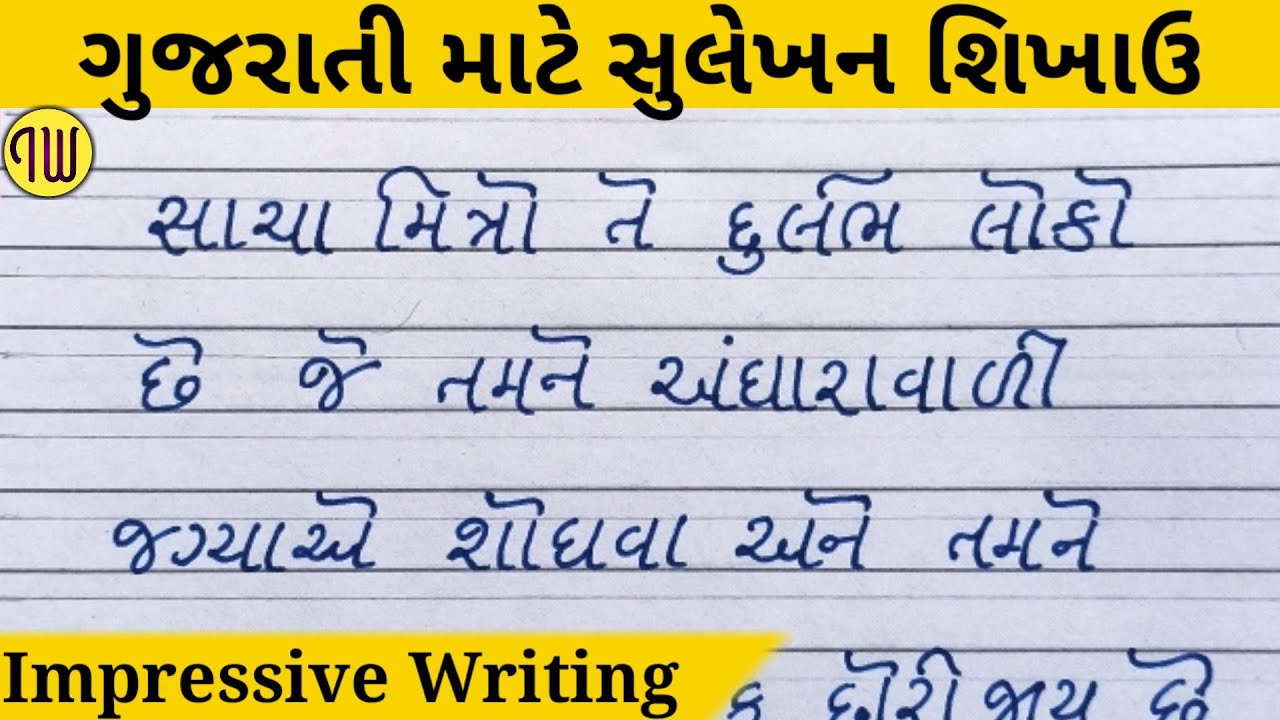 ગુજરાતી માટે સુલેખન શિખાઉ
IW
સાચા મિત્રો તે દુર્લભ લોકો
છે જે તમને અંધારાવાળી
જગ્યાએ શોધવા અને તમને
છોરી જાય છે
Impressive Writing